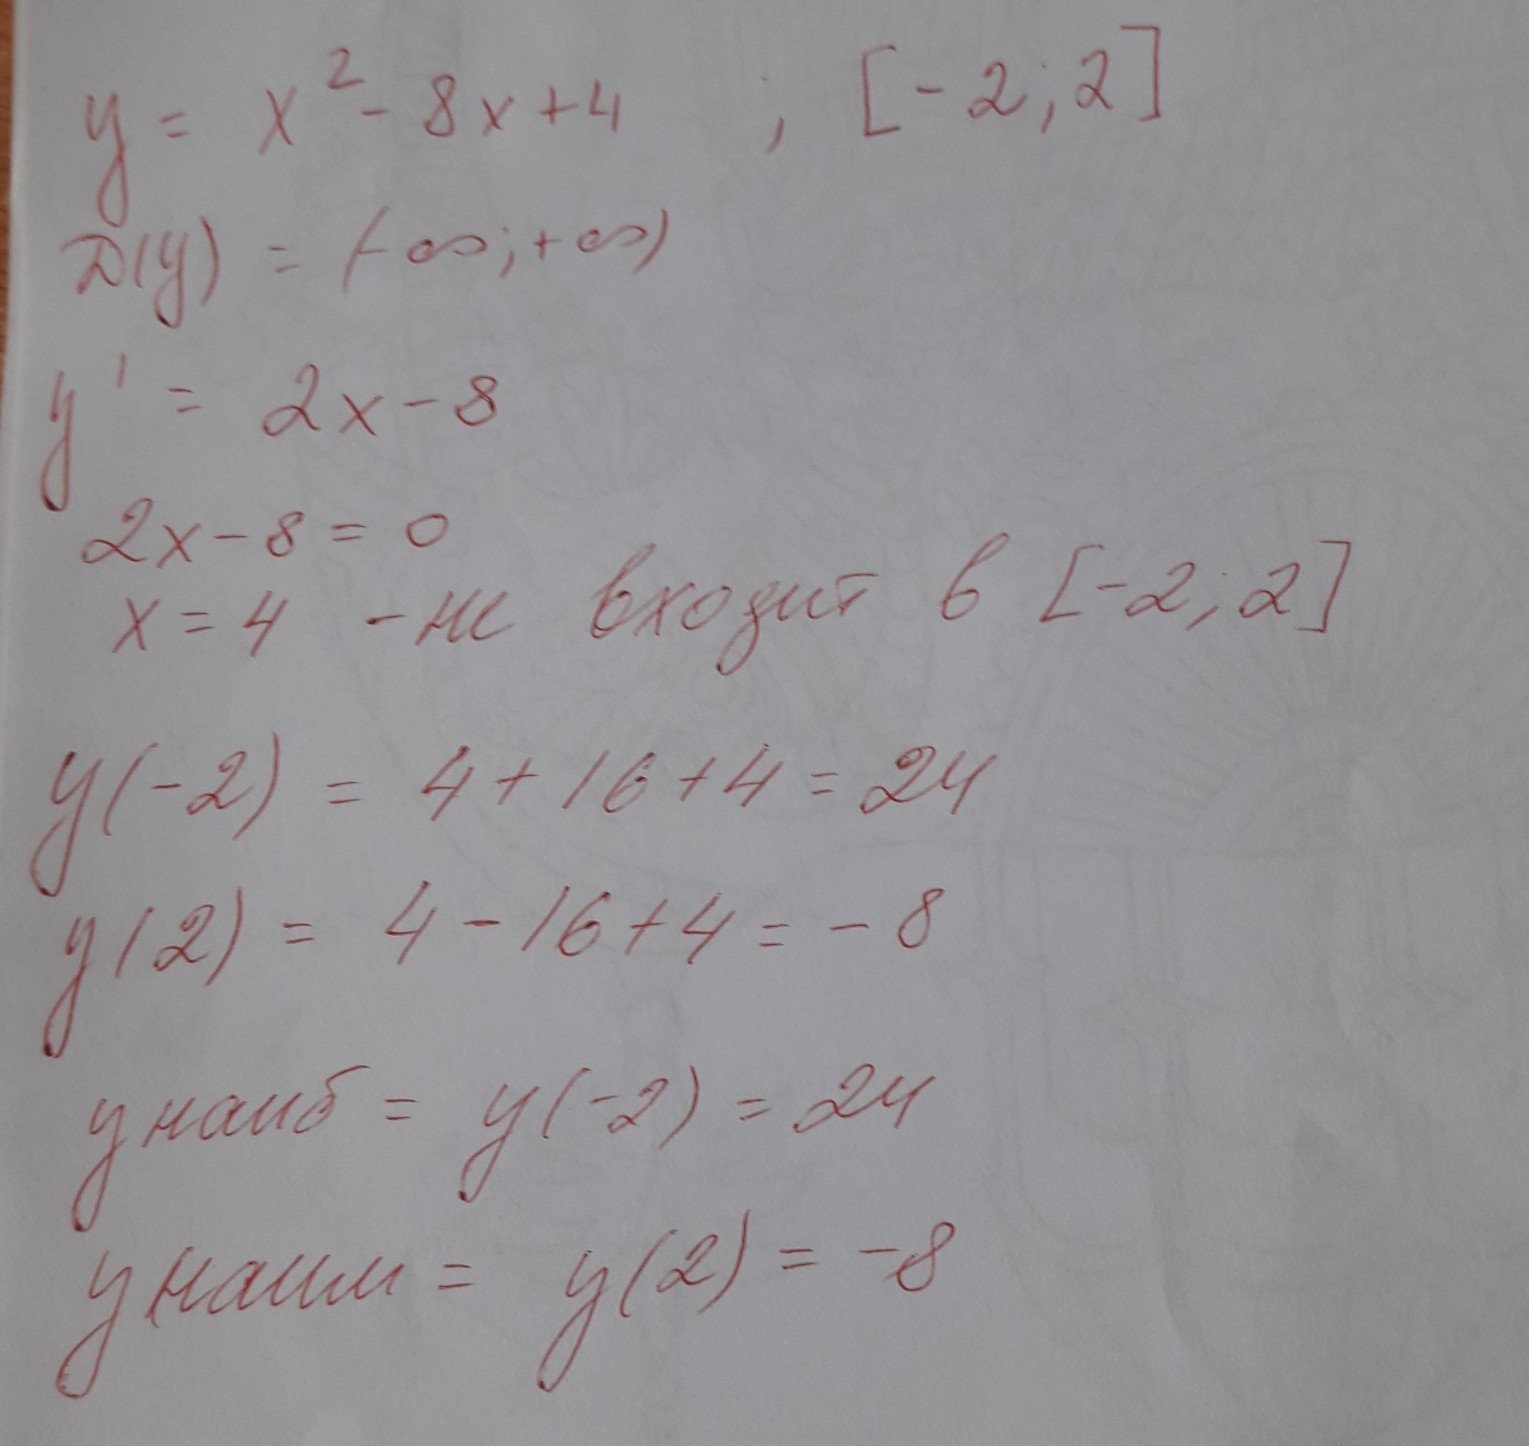 y = x² - 8x + 4 ; [-2; 2]
D(y) = (-∞; +∞)
y' = 2x - 8
2x - 8 = 0
x = 4 - не входит в [-2; 2]
y(-2) = 4 + 16 + 4 = 24
y(2) = 4 - 16 + 4 = -8
y наиб = y(-2) = 24
y наим = y(2) = -8